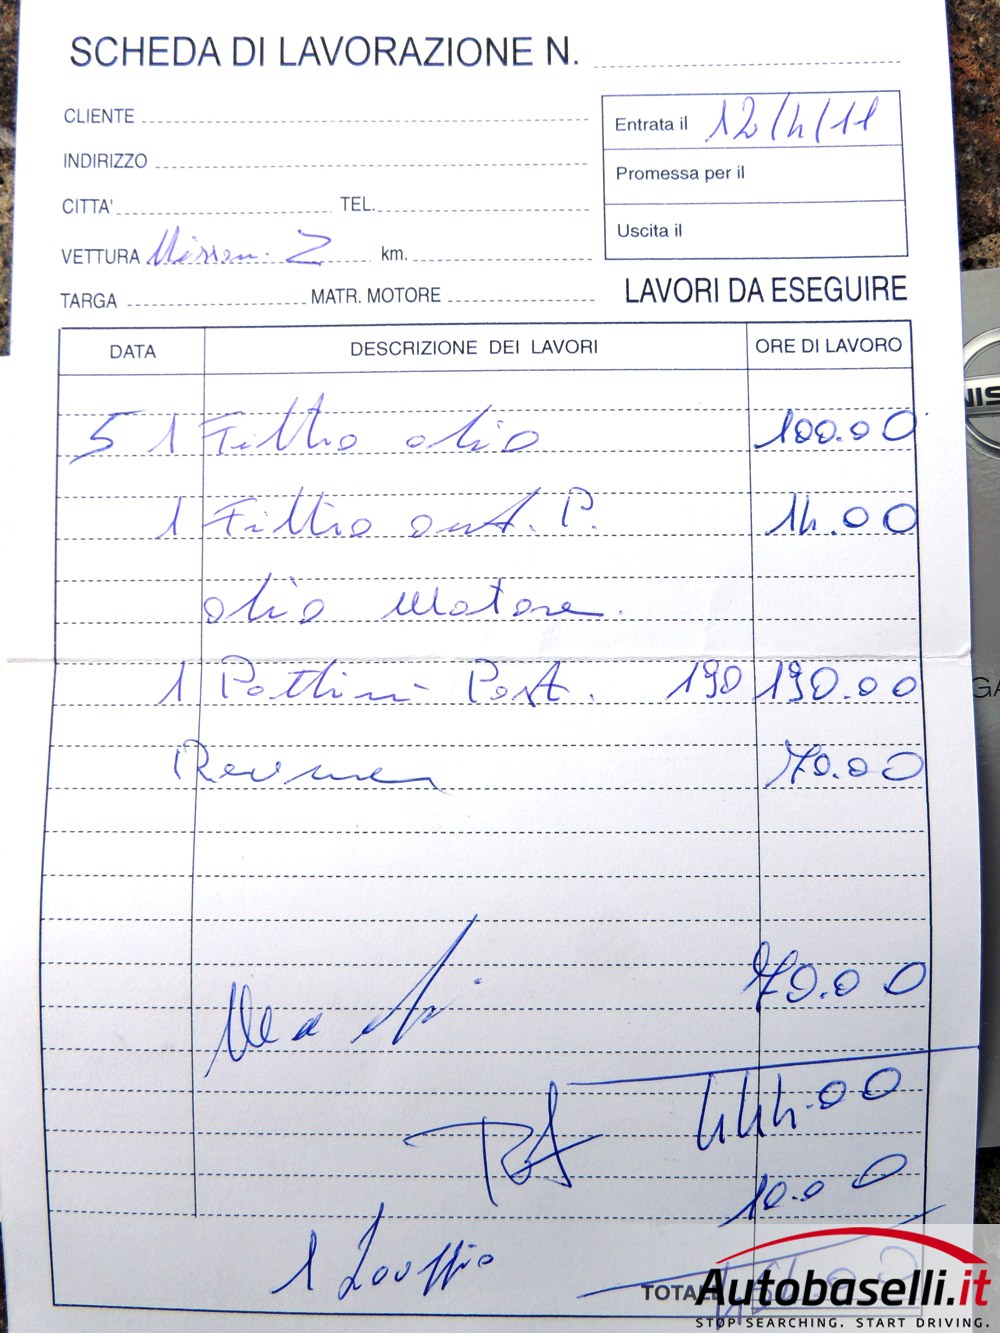 SCHEDA DI LAVORAZIONE N.
CLIENTE
Entrata il 12/4/11
INDIRIZZO
Promessa per il
CITTA' TEL.
Uscita il
VETTURA Nissan. Z km.
TARGA MATR. MOTORE
LAVORI DA ESEGUIRE
DATA DESCRIZIONE DEI LAVORI ORE DI LAVORO
5 1 Filtro olio 100.00
1 Filtro ant. P. 14.00
olio Motore.
1 Pattini Post. 190 190.00
70.00
70.00
444.00
10.00
1
TOTALE
NIS
GA
Autobaselli.it
STOP SEARCHING. START DRIVING.